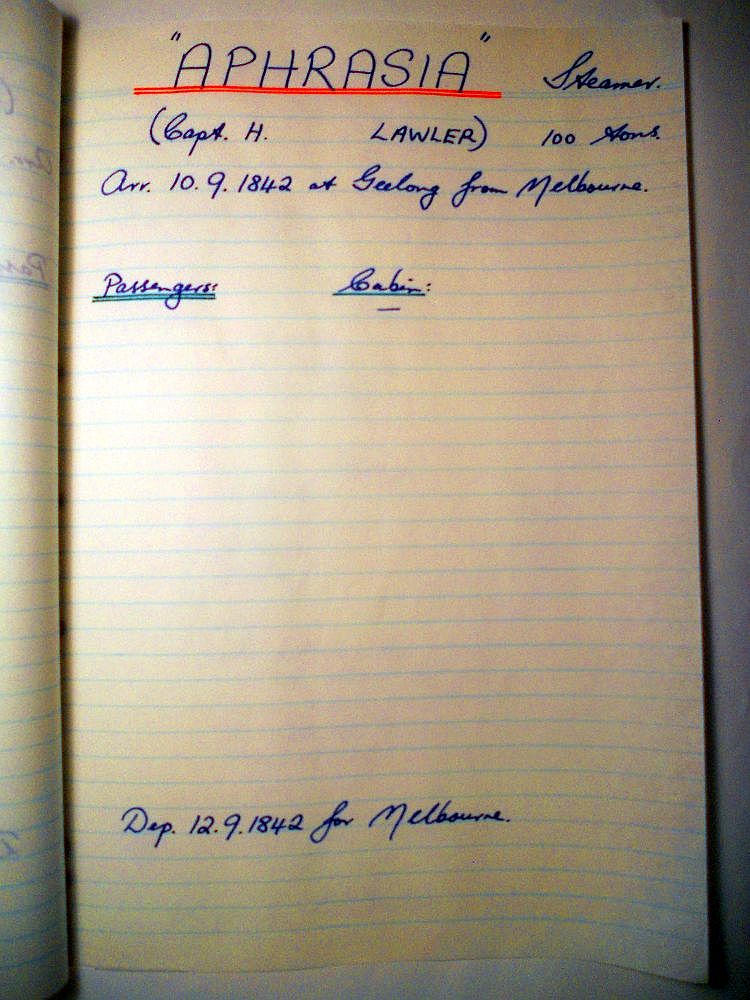 "APHRASIA" Steamer.
(Capt. H. LAWLER) 100 tons.
Arr. 10.9.1842 at Geelong from Melbourne.
Passengers: Cabin:
—
Dep. 12.9.1842 for Melbourne.